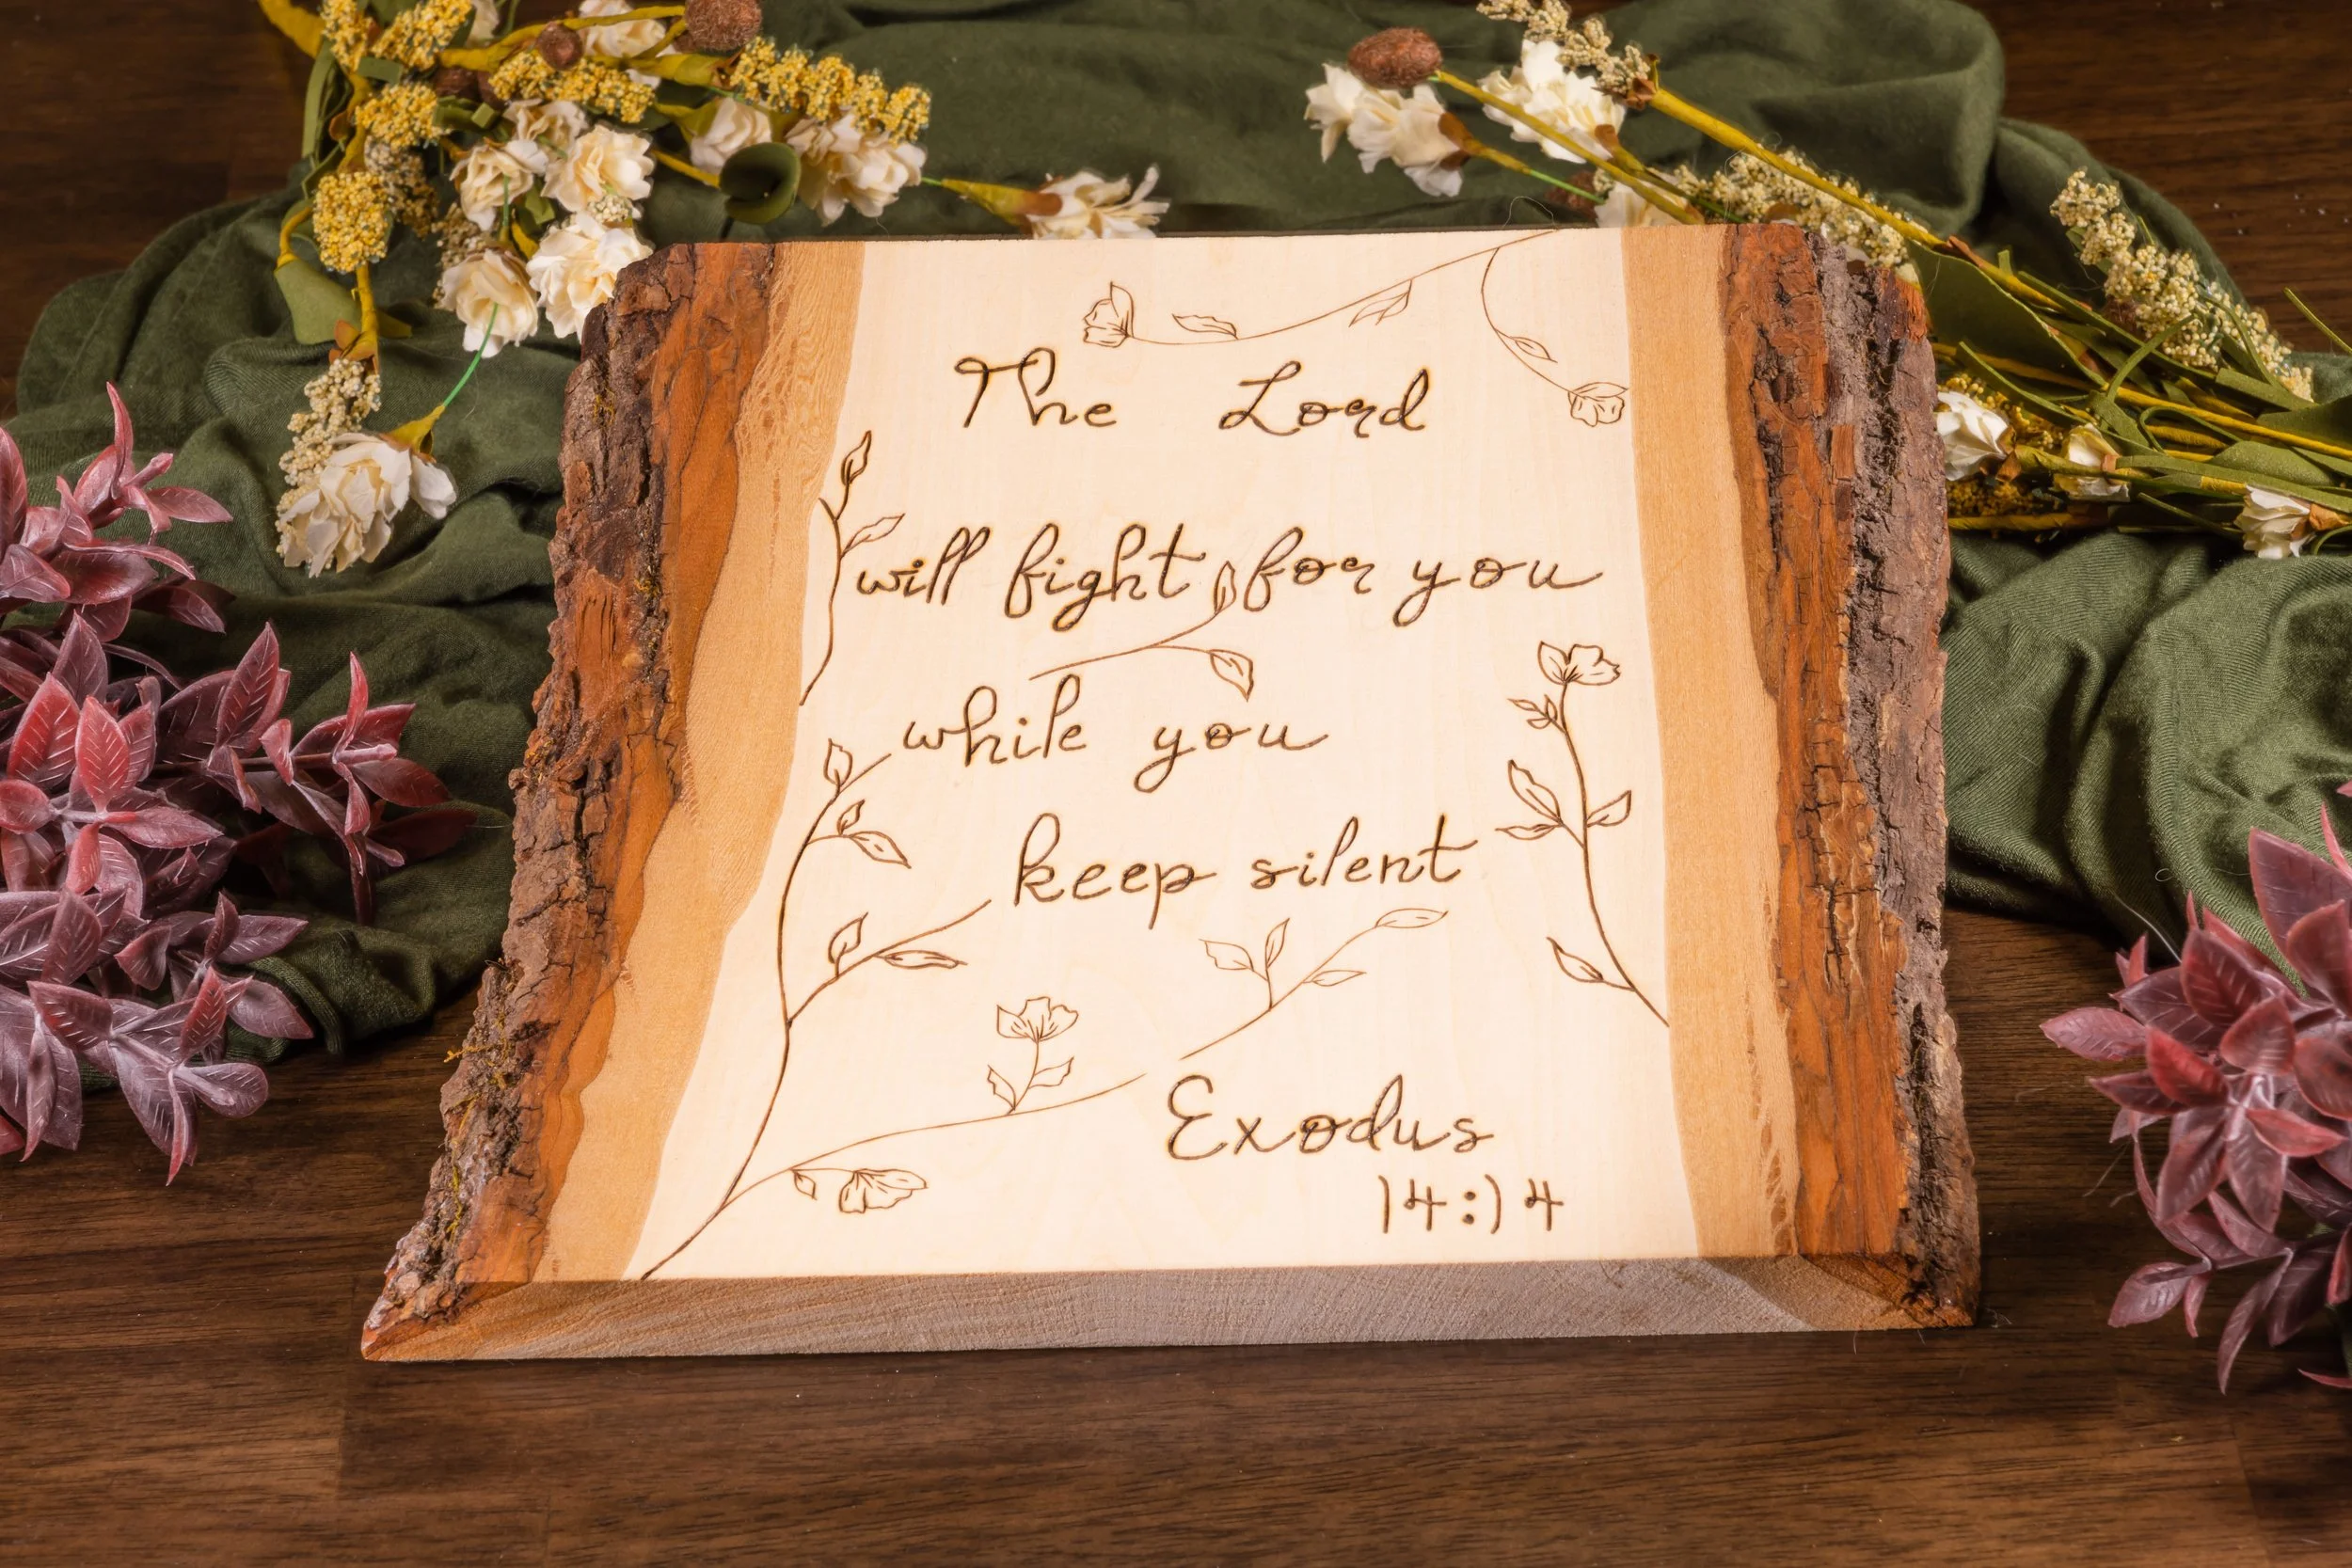 The Lord
will fight for you
while you
keep silent
Exodus
14:14